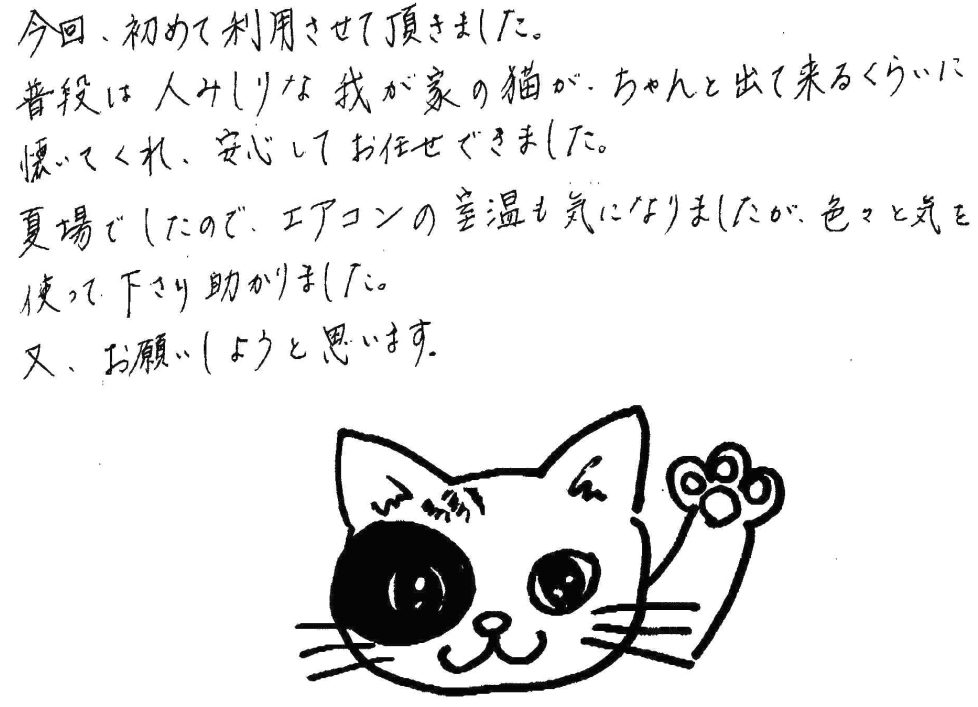 今回、初めて利用させて頂きました。
普段は人みしりな我が家の猫が、ちゃんと出て来るくらいに
懐いてくれ、安心してお任せできました。
夏場でしたので、エアコンの室温も気になりましたが、色々と気を
使って下さり助かりました。
又、お願いしようと思います。